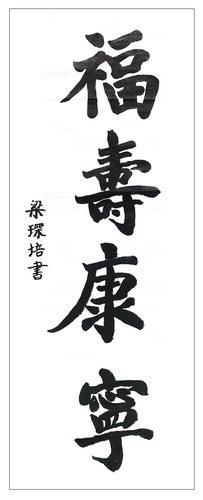 福壽康寧
梁琛培書